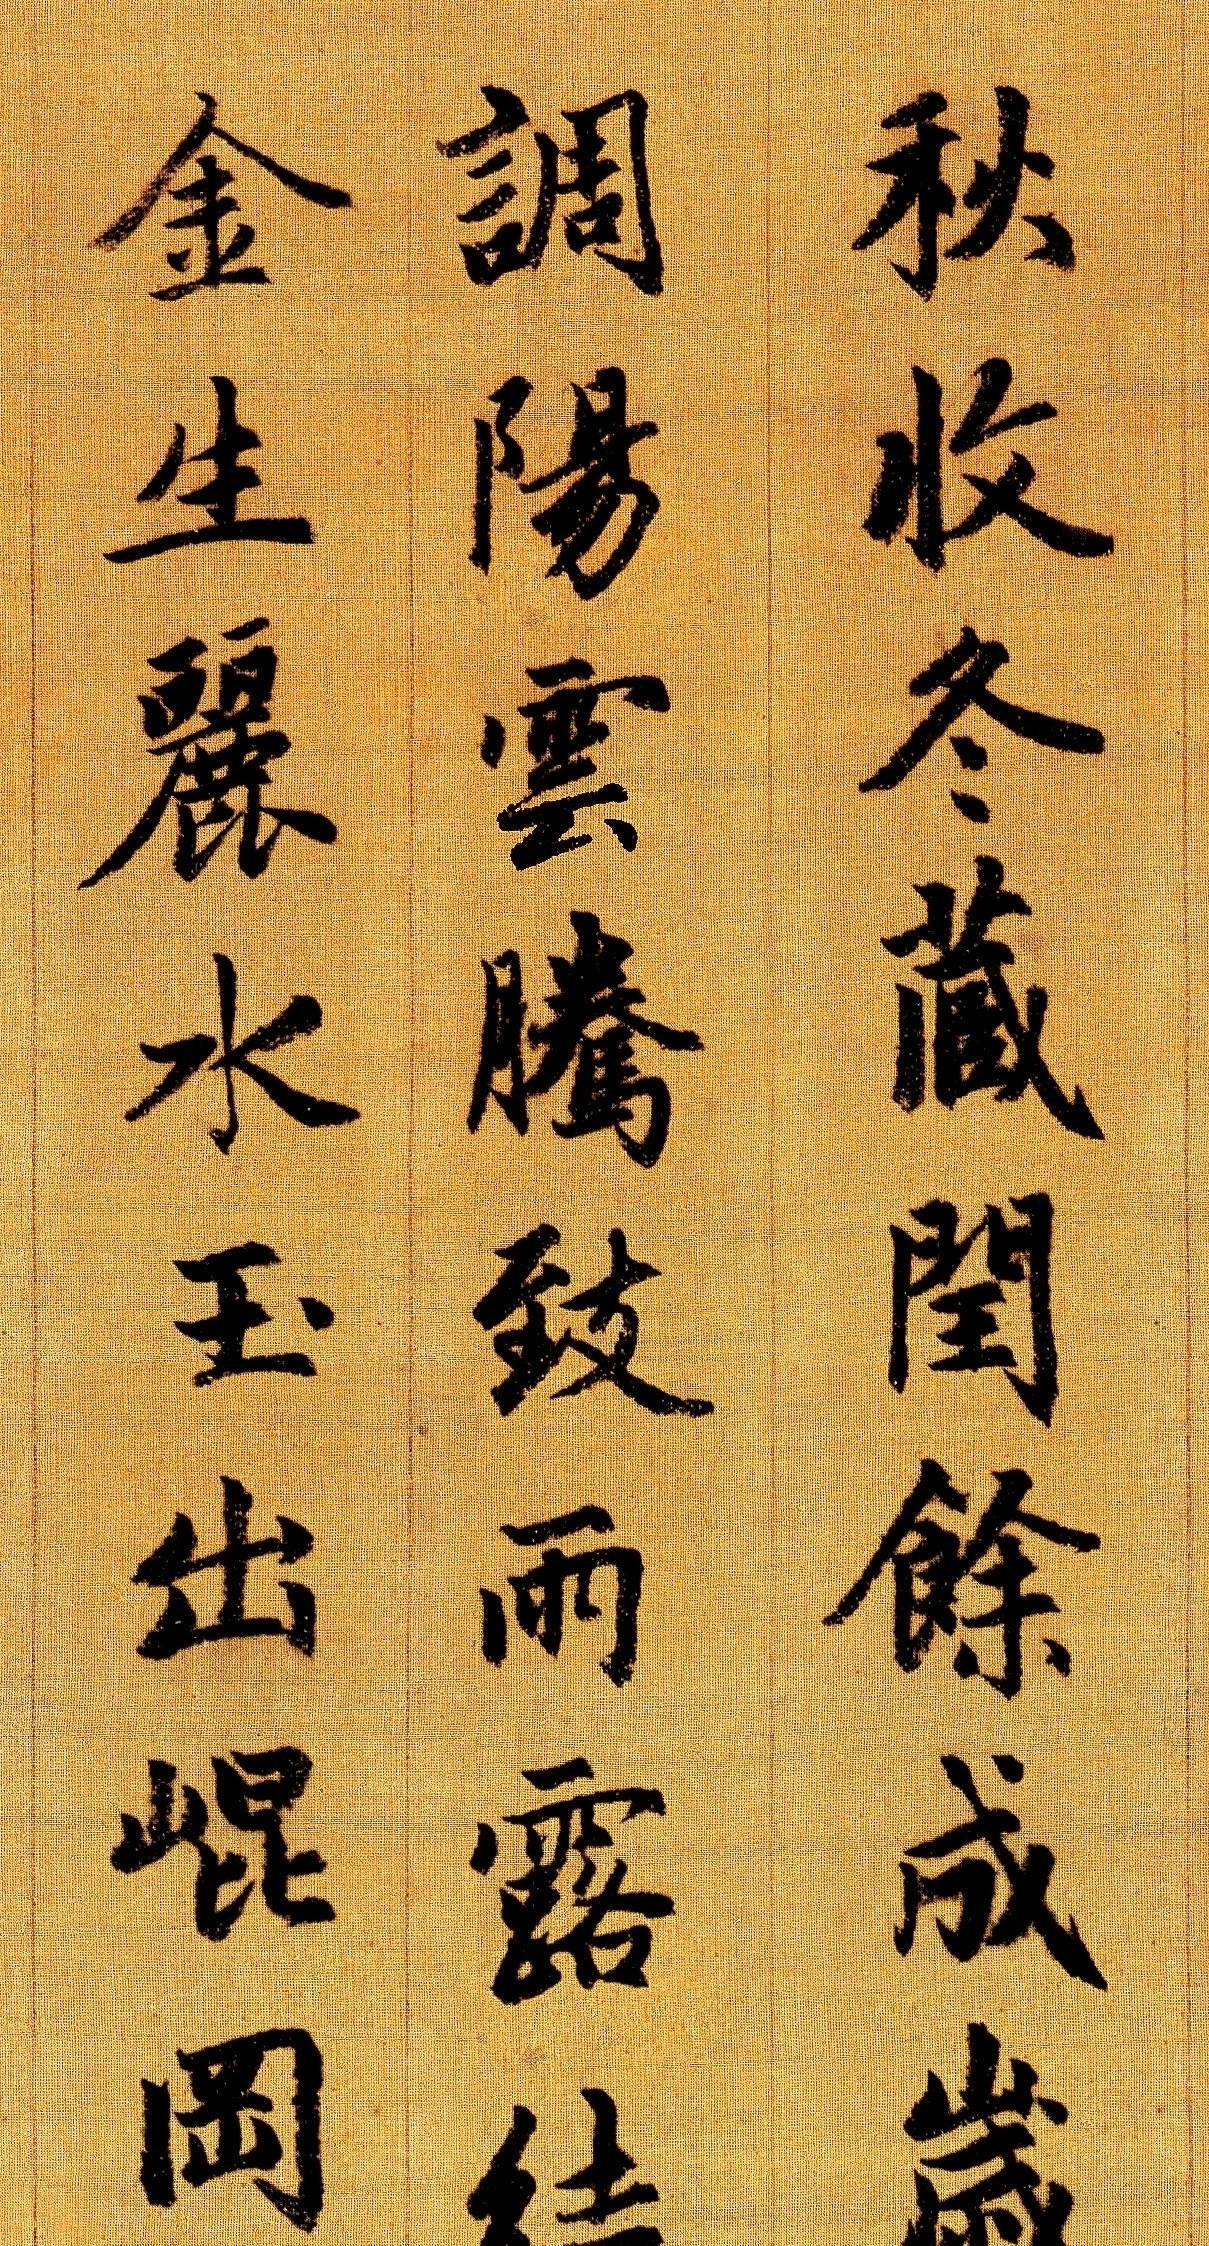 秋收冬藏閏餘成歲
調陽雲騰致雨露結
金生麗水玉出崐岡